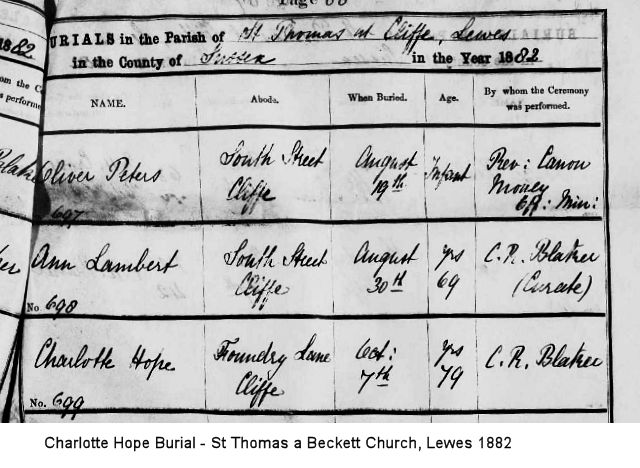 Page 88
BURIALS in the Parish of St Thomas at Cliffe, Lewes
in the County of Sussex in the Year 1882
NAME. Abode. When Buried. Age. By whom the Ceremony was performed.
Oliver Peters South Street Cliffe August 19th Infant Rev: Canon Money Off: Min:
697
Ann Lambert South Street Cliffe August 30th yrs 69 C. R. Blaker (Curate)
No. 698
Charlotte Hope Foundry Lane Cliffe Oct: 7th yrs 79 C. R. Blaker
No. 699
Charlotte Hope Burial - St Thomas a Beckett Church, Lewes 1882